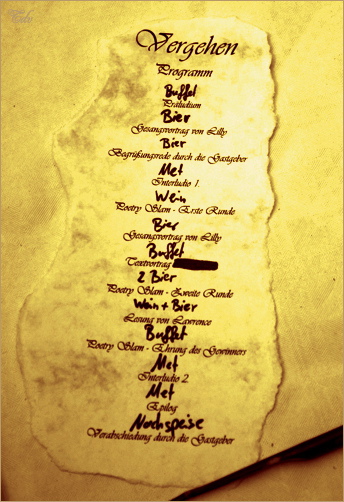 Vergehen
Programm
Buffet
Präludium
Bier
Gesangsvortrag von Lilly
Bier
Begrüßungsrede durch die Gastgeber
Met
Interludio 1
Wein
Poetry Slam - Erste Runde
Bier
Gesangsvortrag von Lilly
Buffet
Textvortrag
2 Bier
Poetry Slam - Zweite Runde
Wein + Bier
Lesung von Lawrence
Buffet
Poetry Slam - Ehrung des Gewinners
Met
Interludio 2
Met
Epilog
Nachspeise
Verabschiedung durch die Gastgeber